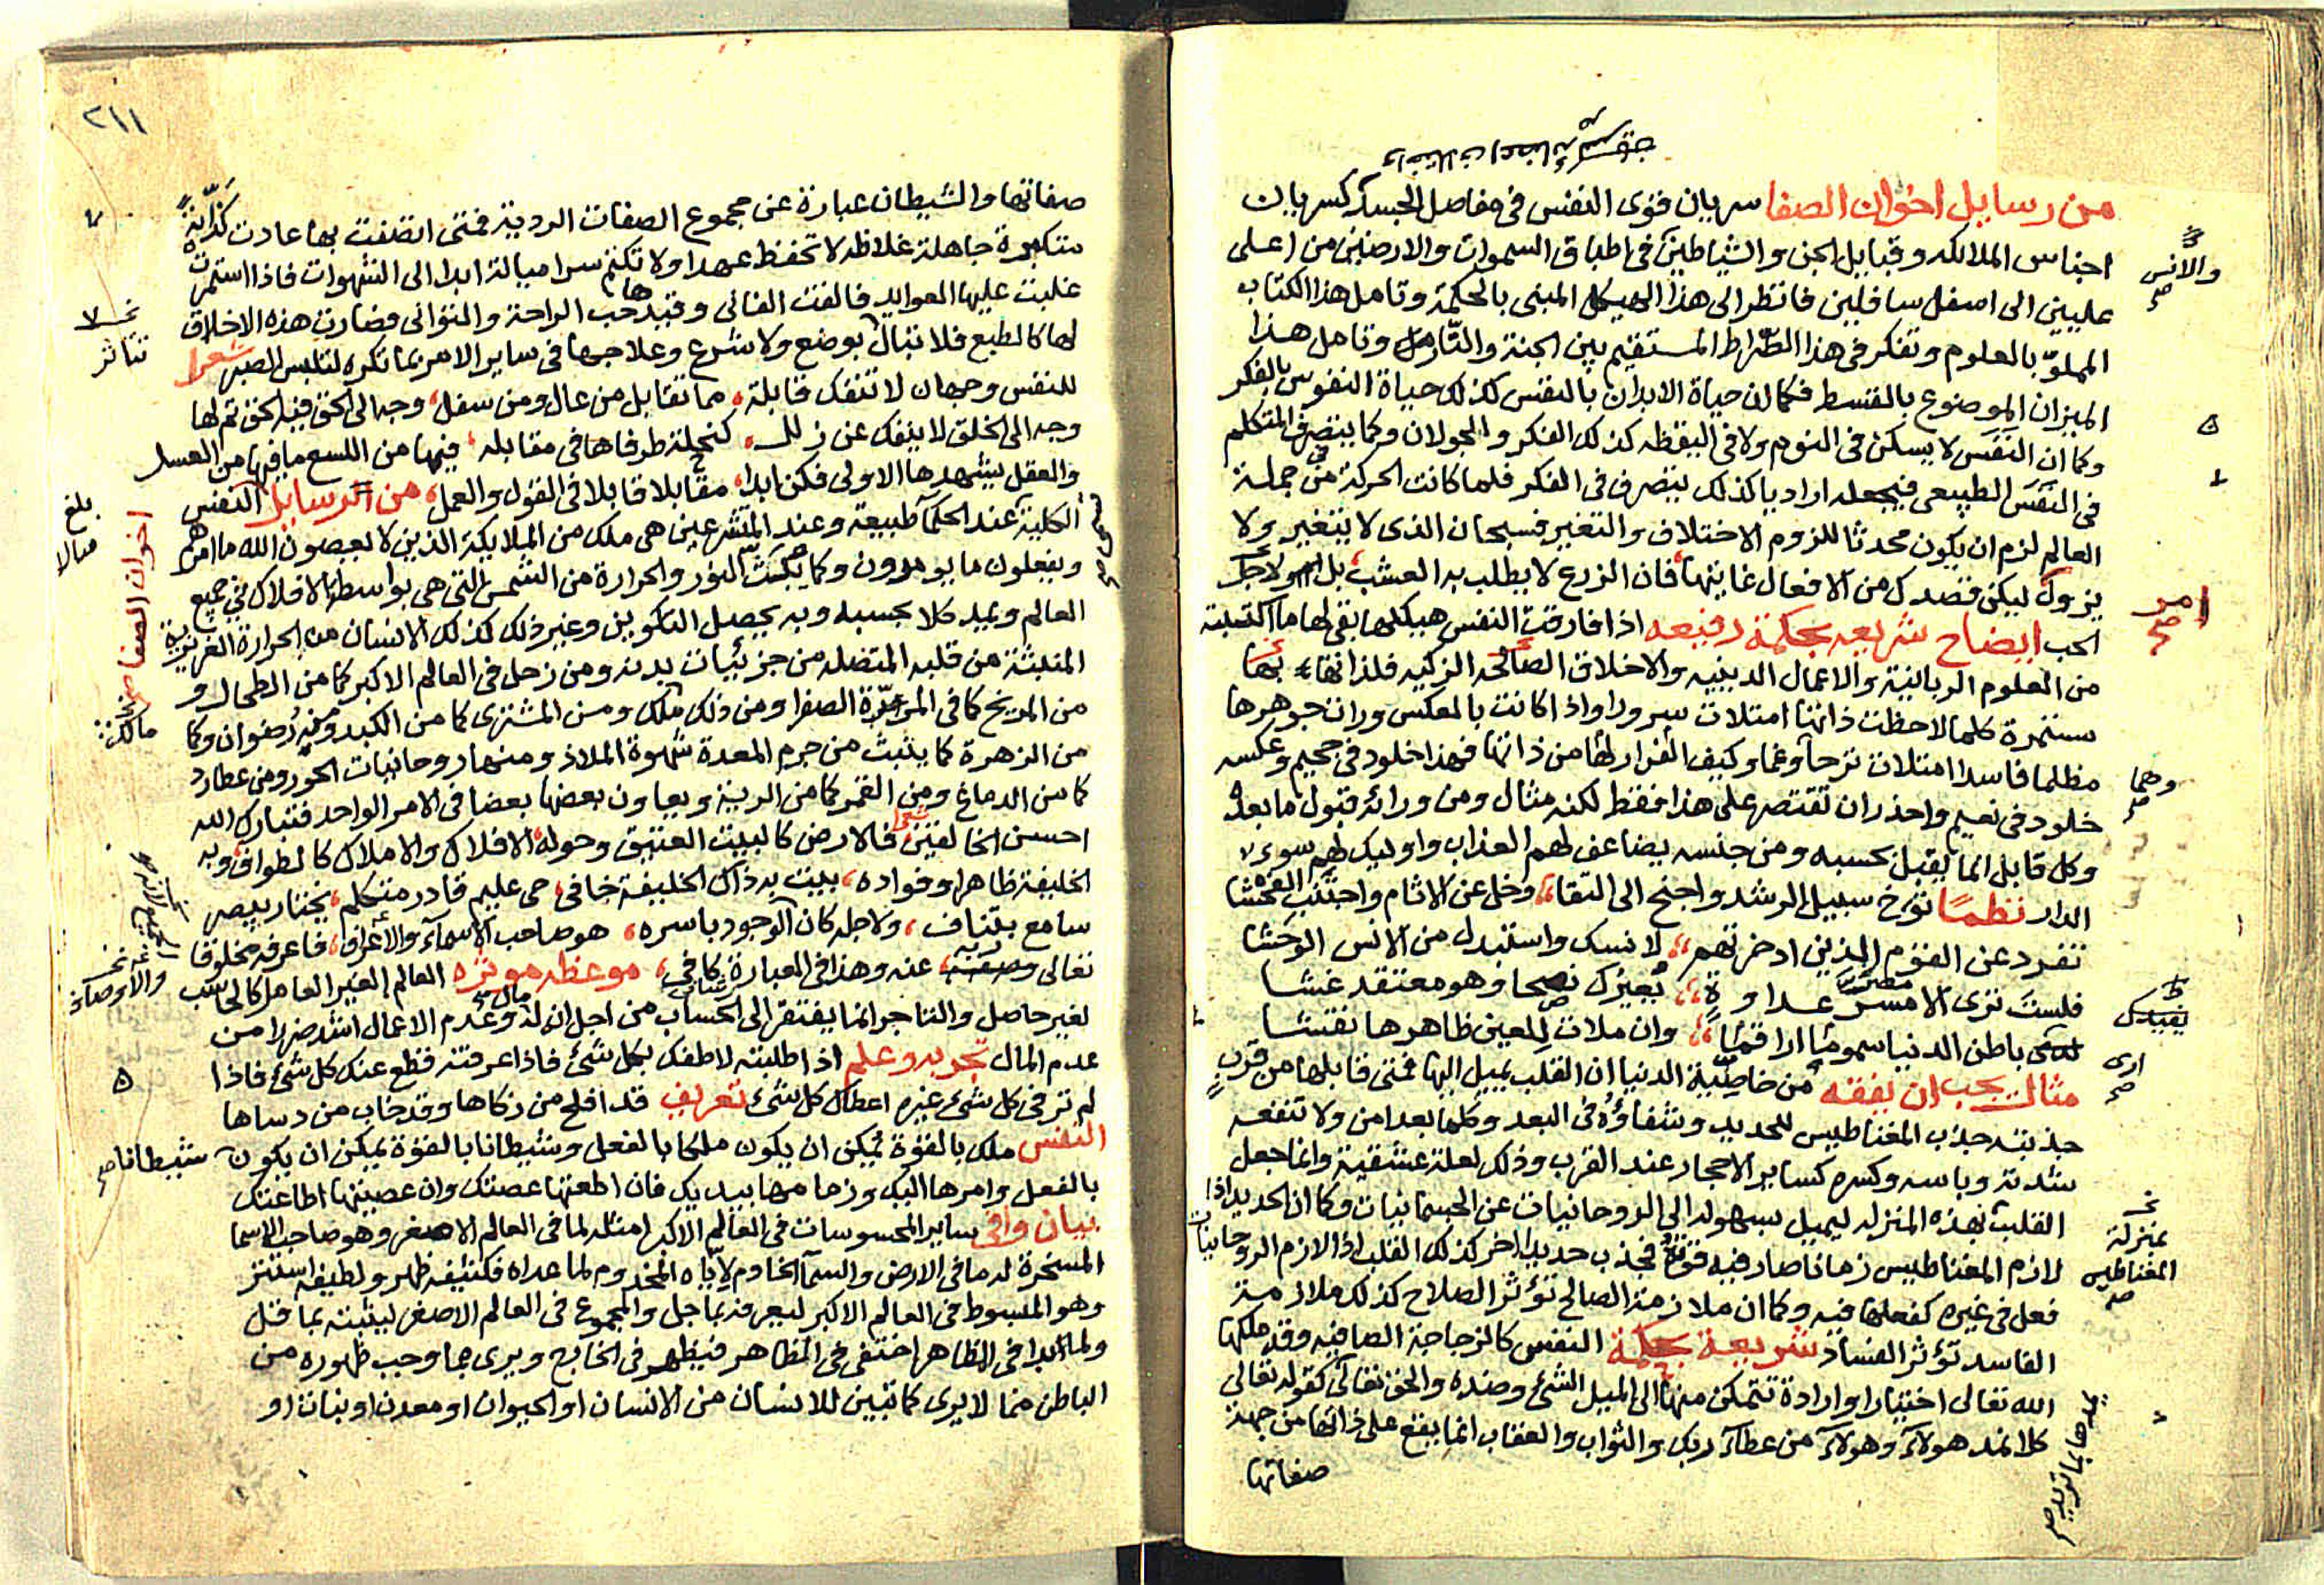 من رسايل اخوان الصفا سريان قوى النفس في مفاصل الجسد كسريان
اجناس الملائكه وقبايل الجن والشياطين في اطباق السموات والارضين من اعلى
عليين الى اسفل سافلين فانظر الى هذا الهيكل المبنى بالحكمة وتامل هذا الكتاب
المملوّ بالعلوم وتفكر في هذا الصّراط المستقيم بين الجنة والنّار وتامل هذا
الميزان الموضوع بالقسط فكما ان حياة الابدان بالنفس كذلك حياة النفوس بالفكر
وكما ان النفس لا يسكن في النوم ولا في اليقظه كذلك الفكر والجولان وكما يتصرف المتكلم
في النفس الطبيعى فيجعله اراديا كذلك يتصرف في الفكر فلما كانت الحركة من جملة
العالم لزم ان يكون محدثا للزوم الاختلاف والتغير فسبحان الذى لا يتغير ولا
يزول ليكن قصدك من الافعال غاينها فان الزرع لا يطلب به العشب بل لاجل
الحب ايضاح شريعه بحكمة رفيعه اذا فارقت النفس هيكلها بقى لها ما اكتسبته
من العلوم الربانية والاعمال الدينيه والاخلاق الصالحه الزكيه فلذاتها بها
مستمرة كلما لاحظت ذاتها امتلات سرورا واذا كانت بالعكس وران جوهرها
مظلما فاسدا امتلات ترحا وغما وكيف الفرار لها من ذاتها فهذا خلود في جحيم وعكسه
خلود في نعيم واحذر ان تقتصر على هذا فقط لكنه مثال ومن ورائه قبول ما بعده
وكل قابل انما يقبل بحسبه ومن جنسه يضاعف لهم العذاب واوليك لهم سوء
الدار نظمًا توخ سبيل الرشد واجنح الى التقا وخل عن الاثام واجتنب الفحشا
تفرد عن القوم الذين ادخرتهم لانسك واستبدل من الانس الوحشا
فلست ترى الا مسر عداوة يعيرك نصحا وهو معتقد غشا
باطن الدنيا سموما اراقما وان ملات للعين ظاهرها نقشا
مثال يجب ان يفقه من خاصّية الدنيا ان القلب يميل اليها فمتى قابلها من قرب
جذبته جذب المغناطيس للحديد وشفاؤه في البعد وكلما بعد امن ولا تنفعه
شدته وباسه وكسره كساير الاحجار عند القرب وذلك لعلة عشقية وانما جعل
القلب بهذه المنزله ليميل بسهوله الى الروحانيات عن الجسمانيات وكما ان الحديد اذا
لازم المغناطيس زمانا صار فيه قوة فجذب حديدا اخر كذلك القلب اذا لازم الروحانيات
فعل في غيره كفعلها فيه وكما ان ملازمة الصالح تؤثر الصلاح كذلك ملازمة
الفاسد تؤثر الفساد شريعة بحكمة النفس كالزجاجة الصافيه وقد ملكها
الله تعالى اختيارا وارادة تتمكن منها الى الميل الشئ وضده والحق تعالى كقوله تعالى
كلا نمد هولاء وهولاء من عطاء ربك والثواب والعقاب انما يقع على ذاتها من جهة
صفاتها
والانس صح
امر صح
وهما صح
يفيدك
ارى صح
بمنزلة
المغناطيس صح
٢١١
صفاتها والشيطان عبارة عن مجموع الصفات الردية فمتى اتصفت بها عادت كذّابة
متكبرة جاهلة غلاظه لا تحفظ عهدا ولا تكتم سرا ميالة ابدا الى الشهوات فاذا استمرت
غلبت عليها العوايد فالفت الفانى وقيدها حب الراحة والتوانى فصارت هذه الاخلاق
لها كالطبع فلا تبال بوضع ولا شرع وعلاجها في ساير الامر بما تكره لتلبس الصبر شعرا
للنفس وجهان لا تنفك قابلة مما تقابل من عال ومن سفل وجه الى الحق فيه لحق ثم لها
وجه الى الخلق لا ينفك عن زلل كنحلة طرفاها في مقابله فيها من اللسع ما فيها من العسل
والعقل يشهدها الاولى فكن ابدا مقابلا قابلا في القول والعمل من الرسايل النفس
الكلية عند الحكما طبيعة وعند المتشرعين هى ملك من الملايكة الذين لا يعصون الله ما امرهم
ويفعلون ما يومرون وكما ينبث النور والحرارة من الشمس التى هى بواسطة الافلاك في جميع
العالم ويمد كلا بحسبه وبه يحصل التكوين وغير ذلك كذلك الانسان من الحرارة الغريزية
المنبثة من قلبه المتصله من جزئيات بدنه ومن زحل في العالم الاكبر كما من الطحال و
من المريخ كما في المرّة الصفرا ومن ذلك ملك ومن المشترى كما من الكبد ومنه رضوان وكما
من الزهرة كما ينبث من جرم المعدة شهوة الملاذ ومنها روحانيات الحور ومن عطارد
كما من الدماغ ومن القمر كما من الرية ويعاون بعضها بعضا في الامر الواحد فتبارك الله
احسن الخالقين شعر فالارض كالبيت العتيق وحوله الافلاك والاملاك كالطواف وبه
الخليفة ظاهرا وفواده بيت به ذاك الخليفة خافى حى عليم قادر متكلم يختار يبصر
سامع بتناف ولاجله كان الوجود باسره هو صاحب الاسماء والأعراف فاعرفه مخلوقا
تعالى عنه وهذا في العبارة كافى موعظه موثره العالم الغير العامل كالحاسب
لغير حاصل والتاجر انما يفتقر الى الحساب من اجل ان له مال وعدم الاعمال اشد ضررا من
عدم المال تجريد وعلم اذا طلبته لاطفك بكل شئ فاذا عرفته قطع عنك كل شئ فاذا
لم تر في كل شئ غيره اعطاك كل شئ تعريف قد افلح من زكاها وقد خاب من دساها
النفس ملك بالقوة يمكن ان يكون ملكا بالفعل وشيطانا بالقوة يمكن ان يكون
بالفعل وامرها اليك وزمامها بيديك فان اطعتها عصتك وان عصيتها اطاعتك
بيان وافى ساير المحسوسات في العالم الاكبر امثله لما في العالم الاصغر وهو صاحب الاسما
المسخرة له ما في الارض والسما الخادم لايّاه المخدوم لما عداه فكثيفه ظهر ولطيفه استتر
وهو المبسوط في العالم الاكبر ليعرفه بما جل والمجموع في العالم الاصغر ليثبته بما قل
ولما بدا في المظاهر اختفى في المظاهر فيظهر في الخارج ويرى بما وجب ظهوره من
الباطن مما لا يرى كما تبين للانسان من الانسان او الحيوان او معدن او نبات او
تتاثر
بلغ
اخوان الصفا صح
مالك
شيطانا صح